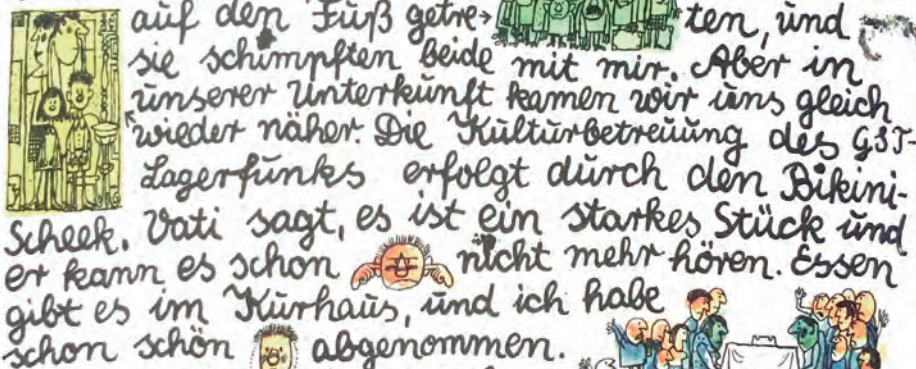 auf den Fuß getre- ten, und
sie schimpften beide mit mir. Aber in
unserer Unterkunft kamen wir uns gleich
wieder näher. Die Kulturbetreuung des GST-
Lagerfunks erfolgt durch den Bikini-
Scheek. Vati sagt, es ist ein starkes Stück und
er kann es schon nicht mehr hören. Essen
gibt es im Kurhaus, und ich habe
schon schön abgenommen.